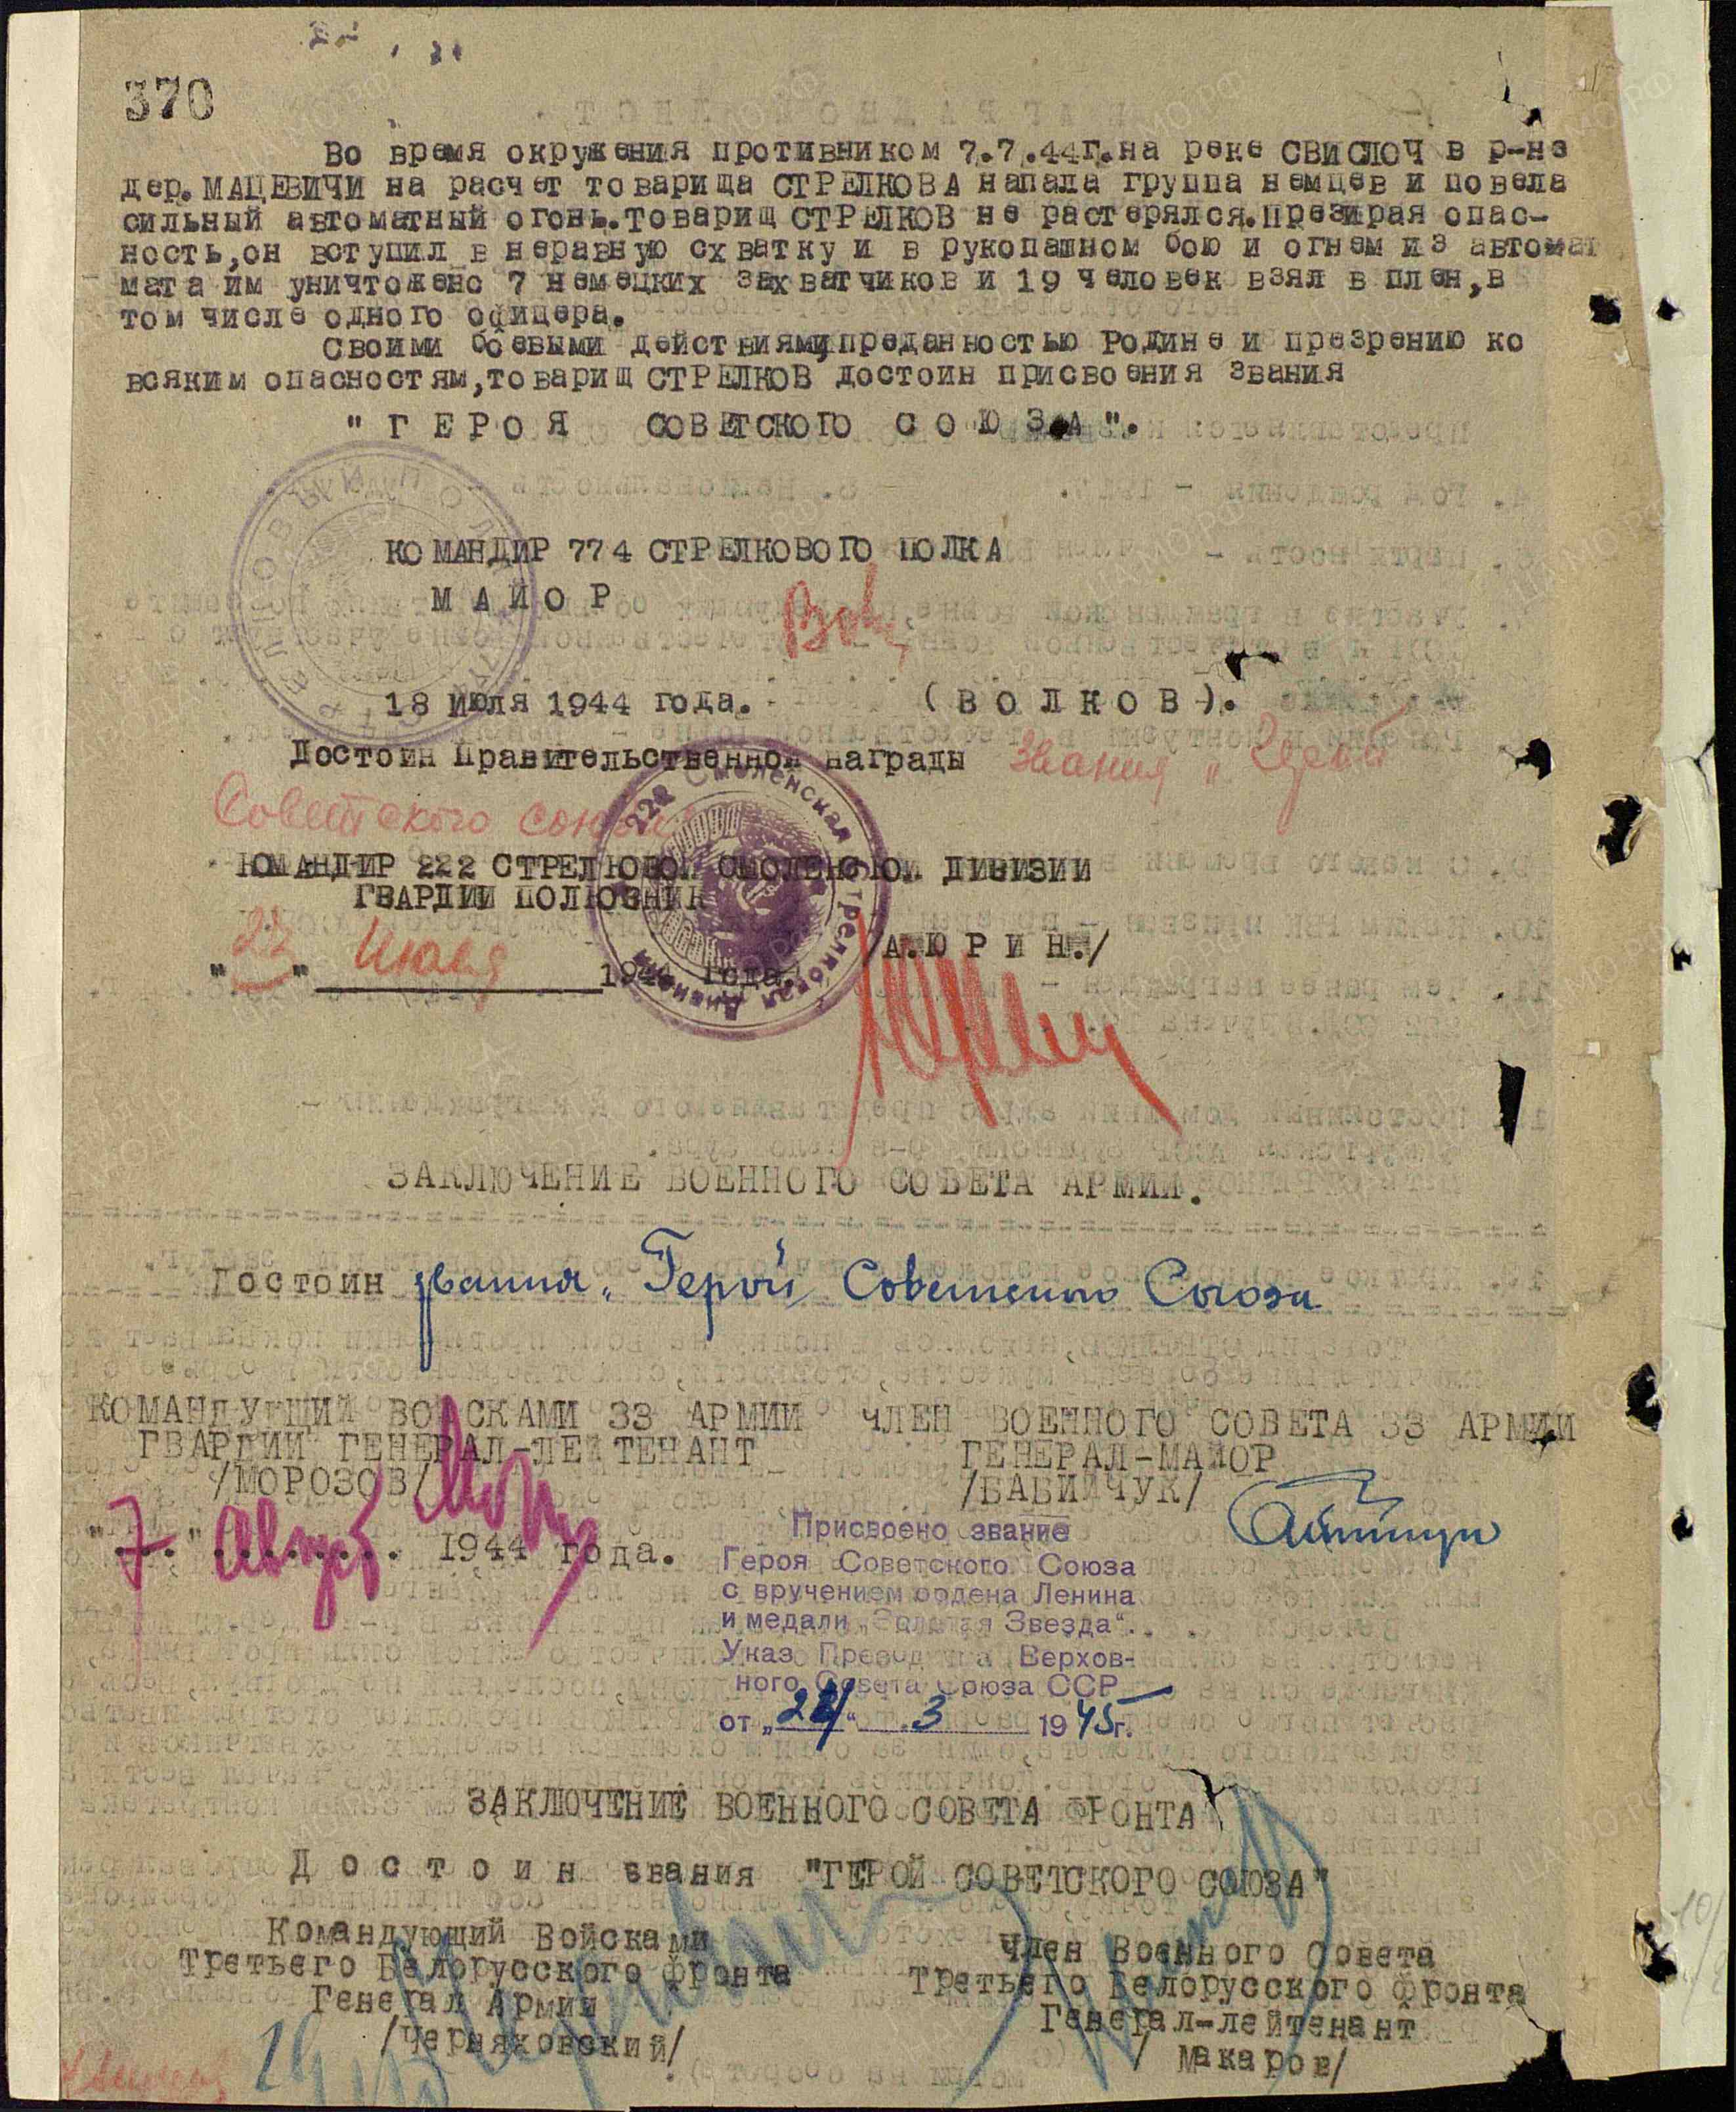 370
Во время окружения противником 7.7.44г.на реке СВИСЛОЧ в р-не
дер.МАЦЕВИЧИ на расчет товарища СТРЕЛКОВА напала группа немцев и повела
сильный автоматный огонь.Товарищ СТРЕЛКОВ не растерялся.Презирая опас-
ность,он вступил в неравную схватку и в рукопашном бою и огнем из автомат
мата им уничтожено 7 немецких захватчиков и 19 человек взял в плен,в
том числе одного офицера.
Своими боевыми действиями,преданностью Родине и презрению ко
всяким опасностям,товарищ СТРЕЛКОВ достоин присвоения звания
"ГЕРОЯ СОВЕТСКОГО СОЮЗА".
КОМАНДИР 774 СТРЕЛКОВОГО ПОЛКА
МАЙОР
18 июля 1944 года. (ВОЛКОВ).
Достоин Правительственной награды звания „Герой
Советского союза
КОМАНДИР 222 СТРЕЛКОВОЙ СМОЛЕНСКОЙ ДИВИЗИИ
ГВАРДИИ ПОЛКОВНИК
/А.ЮРИН./
"22" Июля 1944 года.
222 Смоленская стрелковая дивизия
ЗАКЛЮЧЕНИЕ ВОЕННОГО СОВЕТА АРМИИ.
Достоин звания „Герой Советского Союза
КОМАНДУЩИЙ ВОЙСКАМИ 33 АРМИИ ЧЛЕН ВОЕННОГО СОВЕТА 33 АРМИИ
ГВАРДИИ ГЕНЕРАЛ-ЛЕЙТЕНАНТ ГЕНЕРАЛ-МАЙОР
/МОРОЗОВ/ /БАБИЙЧУК/
"7" Август 1944 года.
Присвоено звание
Героя Советского Союза
с вручением ордена Ленина
и медали „Золотая Звезда".
Указ Президиума Верхов-
ного Совета Союза ССР
от „24" 3 1945г.
ЗАКЛЮЧЕНИЕ ВОЕННОГО СОВЕТА ФРОНТА
Достоин звания "ГЕРОЙ СОВЕТСКОГО СОЮЗА"
Командующий Войсками Член Военного Совета
Третьего Белорусского фронта Третьего Белорусского фронта
Генерал Армии Генерал-лейтенант
/Черняховский/ /Макаров/